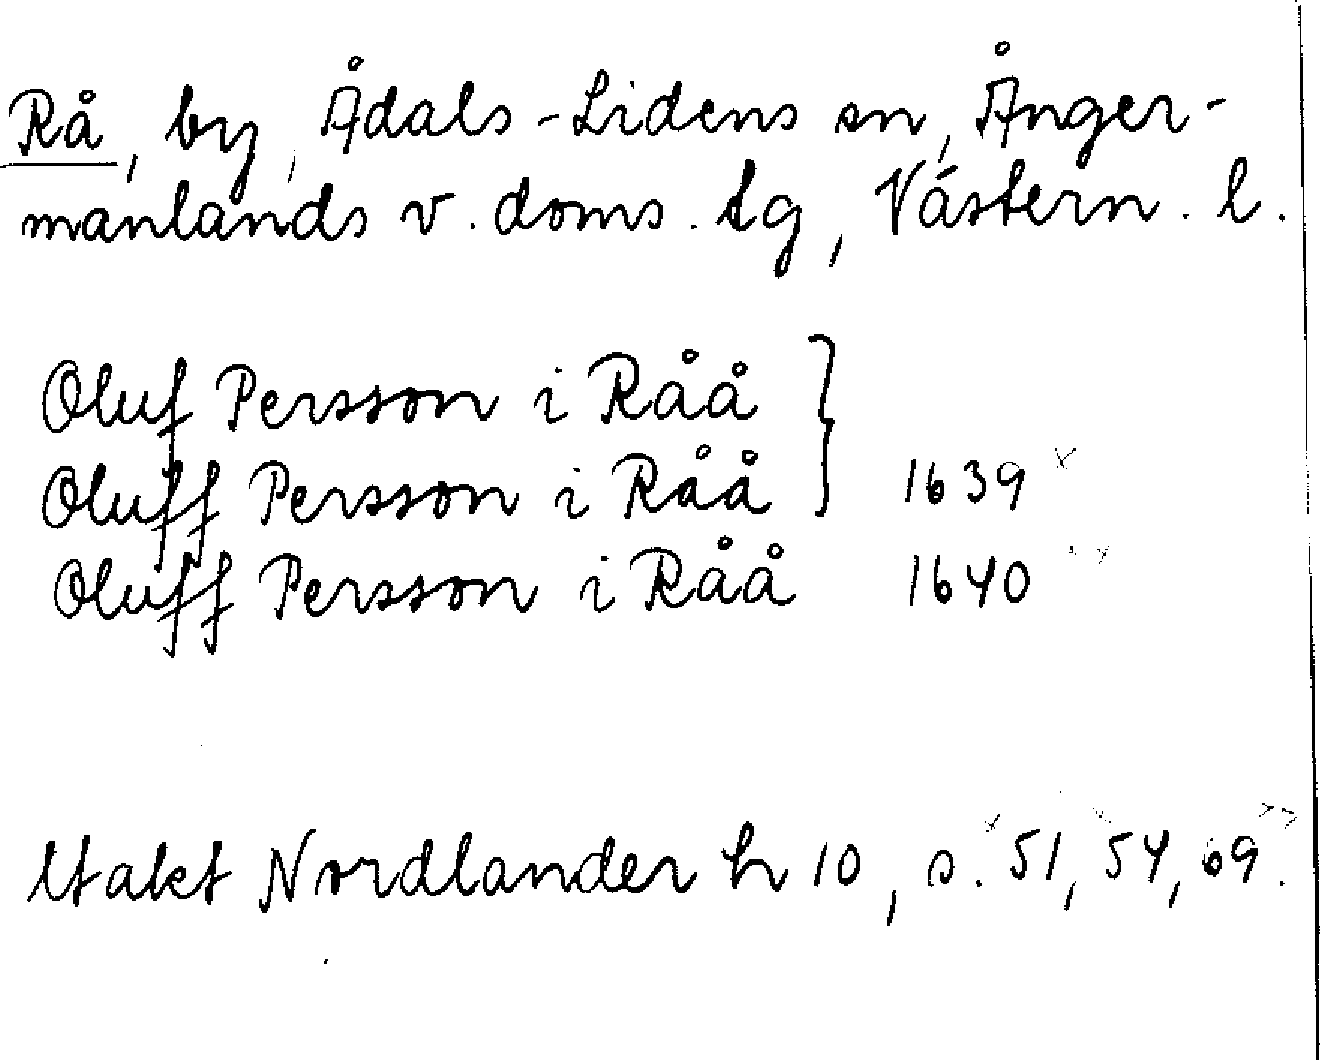 Rå, by, Ådals-Lidens sn, Ånger-
manlands v. doms. tg, Västern. l.
Oluf Persson i Råå
Oluff Persson i Råå } 1639 x
Oluff Persson i Råå 1640
Utakt Nordlander h 10, s. 51, 54, 69.